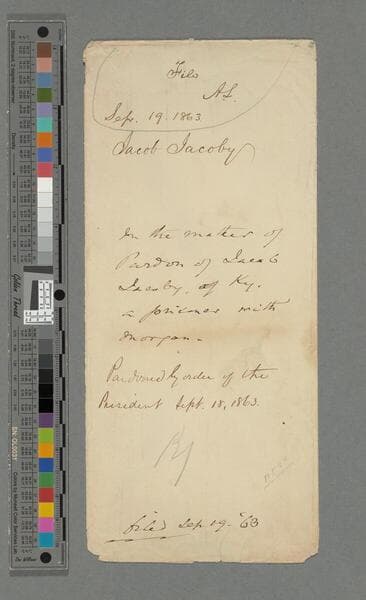 File
A.L.
Sep. 19. 1863
Jacob Jacoby
In the matter of
Pardon of Jacob
Jacoby, of Ky.
a prisoner with
Morgan.
Pardoned by order of the
President Sept. 18, 1863.
Ky
filed Sep. 19. '63
Golden Thread